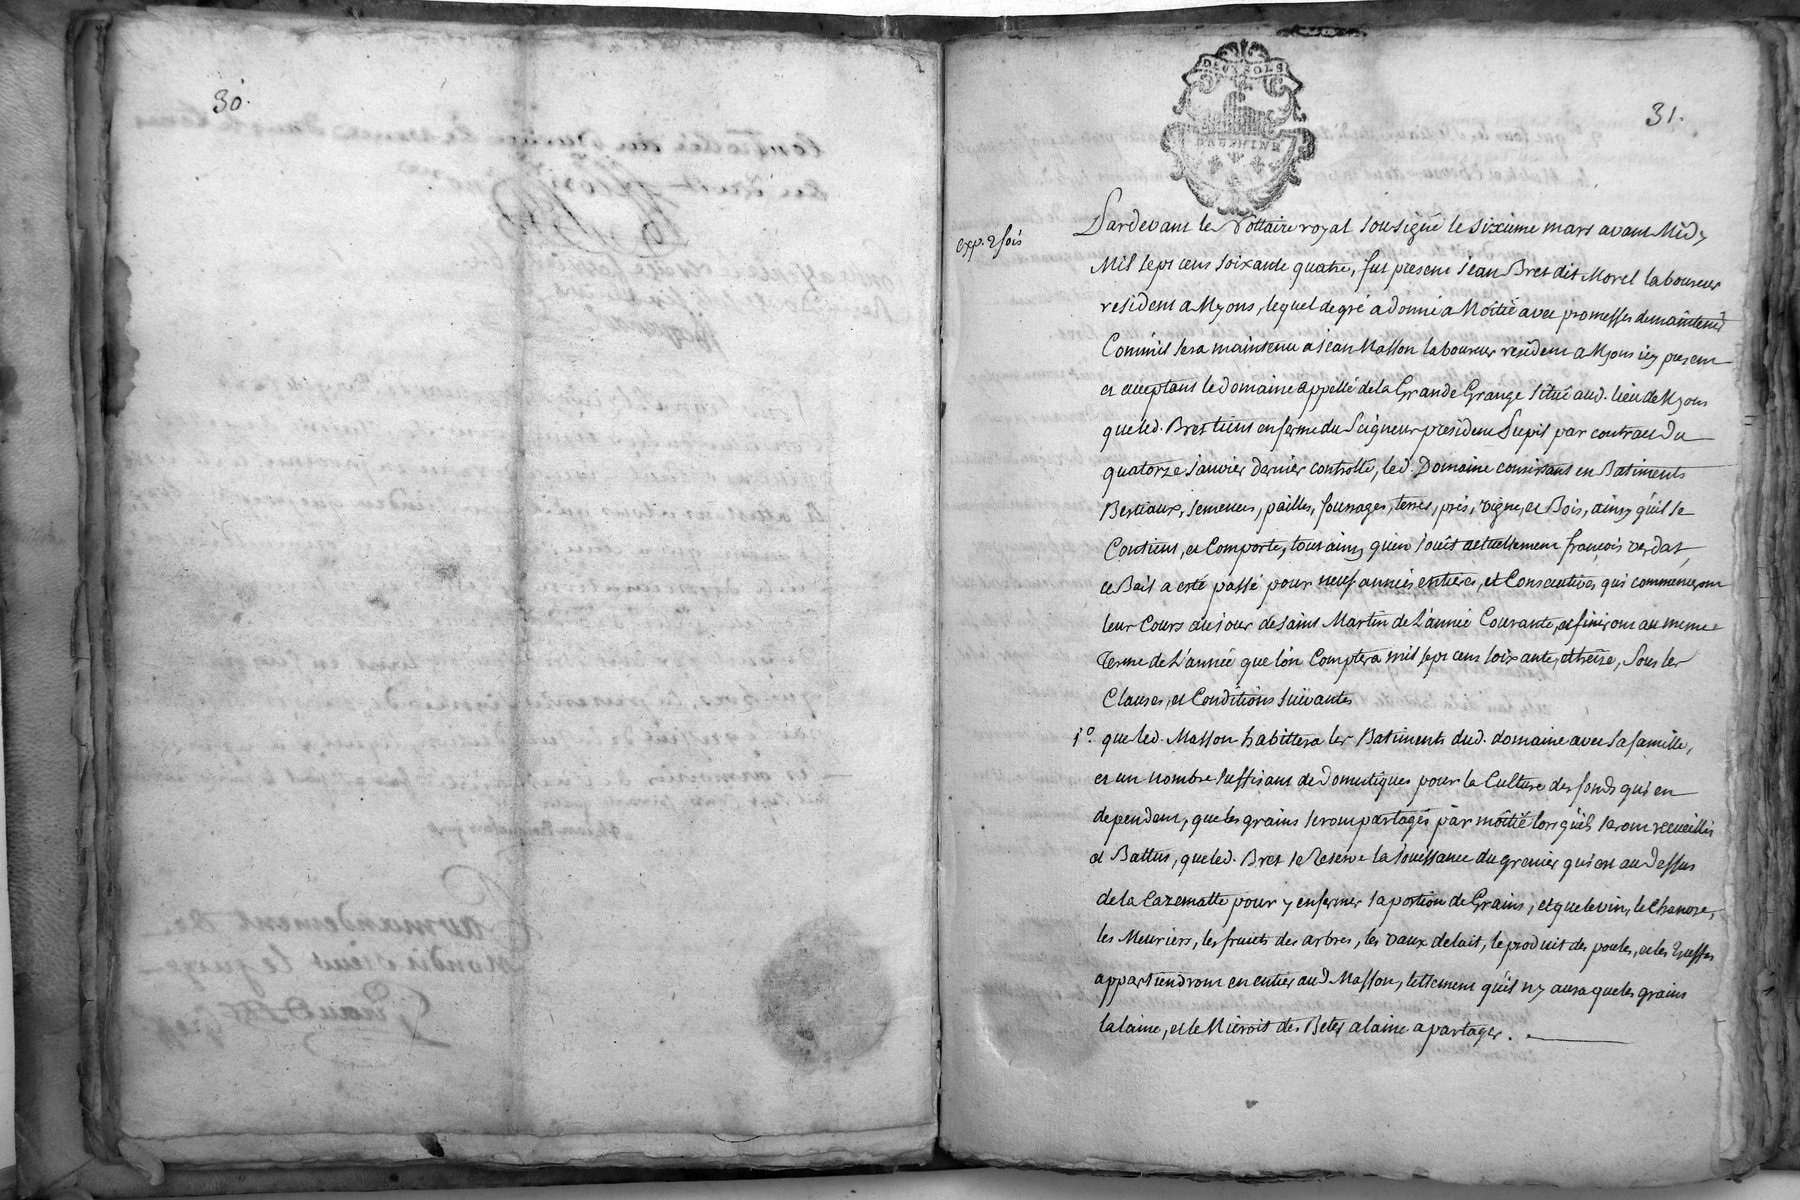 30.
31.
DEUX SOLS
DAUPHINE
exp. 2 fois
Pardevant le Nottaire royal soussigné le sixieme mars avant Midy
Mil sept cens soixante quatre, fut present Jean Bret dit Morel laboureur
resident a Myons, lequel de gré a donné a Moitié avec promesses de maintenir
Comm'il sera maintenu a Jean Masson laboureur resident a Myons icy present
et aceptant le domaine appellé de la Grande Grange situé aud. lieu de Myons
que led. Bret tient en ferme du Seigneur president Pupil par contract du
quatorze Janvier dernier controllé, led. Domaine consistant en Batiments
Bestiaux, semences, pailles, fourrages, terres, prés, vigne, et Bois, ainsy qu'il se
Contient, et Comporte, tout ainsy qu'en Jouit actuellement françois verdat,
ce Bail a esté passé pour neuf années entieres, et Consecutives qui commenceront
leur Cours au jour de saint Martin de L'année Courante, et finiront au meme
Terme de L'année que l'on Comptera mil sept cens soixante, et treise, sous les
Clauses, et Conditions suivantes
1º. que led. Masson habittera les Batiments dud. domaine avec sa famille,
et un nombre suffisant de Domestiques pour la Culture des fonds qui en
dependent, que les grains seront partagés par moitié lors qu'ils seront recueillis
et Battus, que led. Bret se Reserve la Jouissance du grenier qui est au Dessus
de la Cazematte pour y enfermer sa portion de Grains, et que le vin, le Chanvre,
les Meuriers, les fruiets des arbres, les vaux de lait, le produit des poules, et les
appartiendront en entier aud Masson, tellement qu'il n'y aura que les grains
la laine, et le Mieroit des Betes a laine a partager.